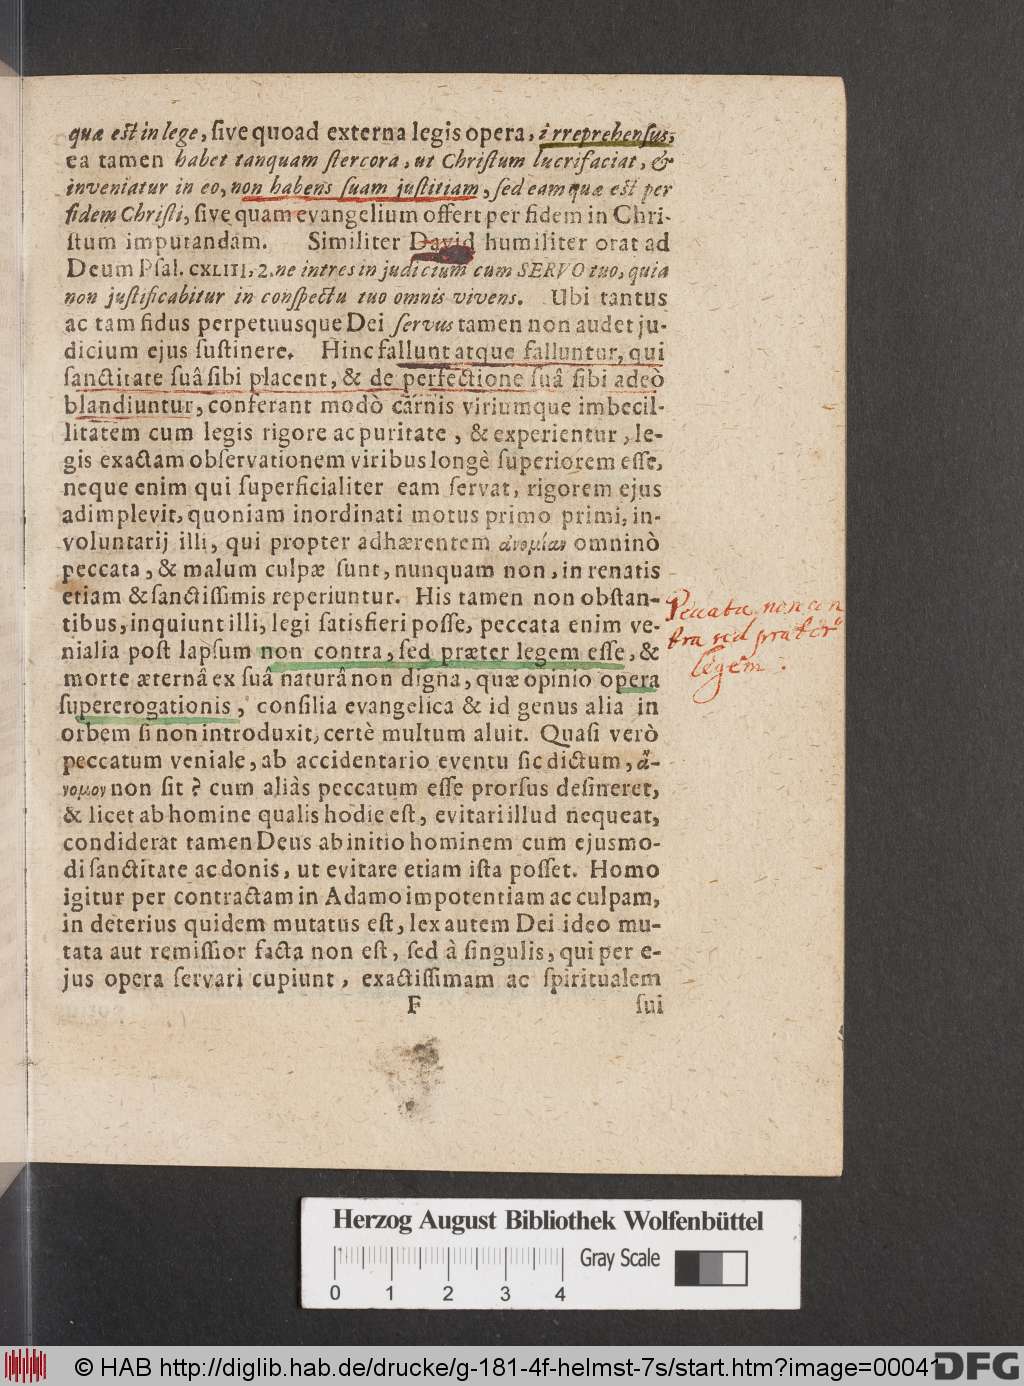 quæ est in lege, sive quoad externa legis opera, irreprehensus,
ea tamen habet tanquam stercora, ut Christum lucrifaciat, &
inveniatur in eo, non habens suam justitiam, sed eam quæ est per
fidem Christi, sive quam evangelium offert per fidem in Chri-
stum imputandam. Similiter David humiliter orat ad
Deum Psal. CXLIII, 2. ne intres in judicium cum SERVO tuo, quia
non justificabitur in conspectu tuo omnis vivens. Ubi tantus
ac tam fidus perpetuusque Dei servus tamen non audet ju-
dicium ejus sustinere. Hinc fallunt atque falluntur, qui
sanctitate suâ sibi placent, & de perfectione suâ sibi adeò
blandiuntur, conferant modò carnis viriumque imbecil-
litatem cum legis rigore ac puritate, & experientur, le-
gis exactam observationem viribus longè superiorem esse,
neque enim qui superficialiter eam servat, rigorem ejus
adimplevit, quoniam inordinati motus primo primi, in-
voluntarij illi, qui propter adhærentem ἀνομίαν omninò
peccata, & malum culpæ sunt, nunquam non, in renatis
etiam & sanctissimis reperiuntur. His tamen non obstan-
tibus, inquiunt illi, legi satisfieri posse, peccata enim ve-
nialia post lapsum non contra, sed præter legem esse, &
morte æternâ ex suâ naturâ non digna, quæ opinio opera
supererogationis, consilia evangelica & id genus alia in
orbem si non introduxit, certè multum aluit. Quasi verò
peccatum veniale, ab accidentario eventu sic dictum, ἄ-
νομον non sit? cum aliàs peccatum esse prorsus desineret,
& licet ab homine qualis hodie est, evitari illud nequeat,
condiderat tamen Deus ab initio hominem cum ejusmo-
di sanctitate ac donis, ut evitare etiam ista posset. Homo
igitur per contractam in Adamo impotentiam ac culpam,
in deterius quidem mutatus est, lex autem Dei ideo mu-
tata aut remissior facta non est, sed à singulis, qui per e-
jus opera servari cupiunt, exactissimam ac spiritualem
F sui
Peccata non con
tra sed præter
legem.
Herzog August Bibliothek Wolfenbüttel
Gray Scale
0 1 2 3 4
© HAB http://diglib.hab.de/drucke/g-181-4f-helmst-7s/start.htm?image=00041
DFG